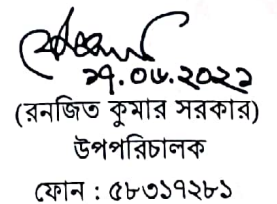 ২৭.০৬.২০২১
(রনজিত কুমার সরকার)
উপপরিচালক
ফোন : ৫৮৩১৭২৮১